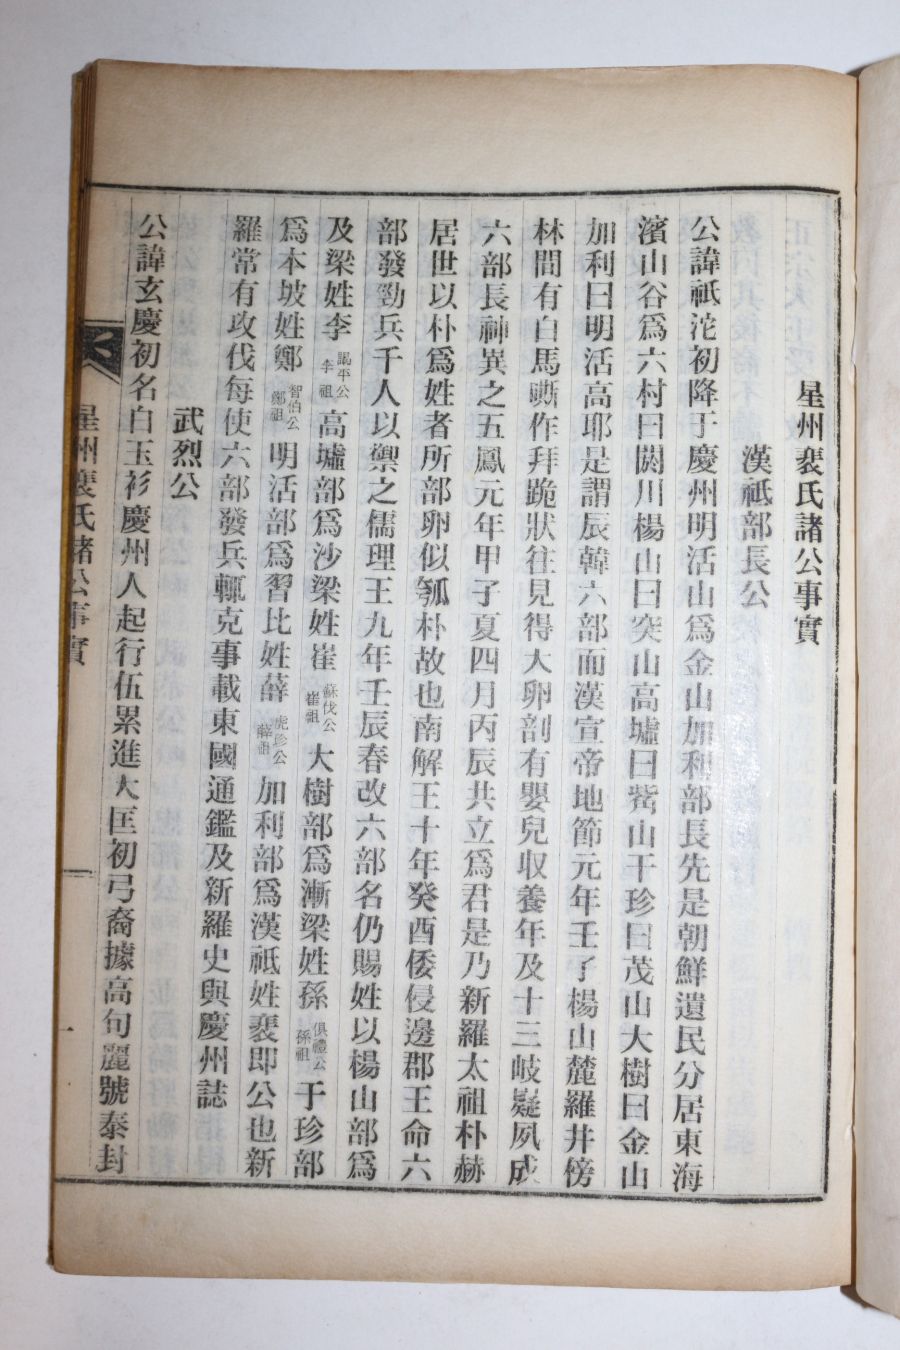 星州裵氏諸公事實
漢祗部長公
公諱祗沱初降于慶州明活山爲金山加利部長先是朝鮮遺民分居東海
濱山谷爲六村曰閼川楊山曰突山高墟曰觜山干珍曰茂山大樹曰金山
加利曰明活高耶是謂辰韓六部而漢宣帝地節元年壬子楊山麓羅井傍
林間有白馬嘶作拜跪狀往見得大卵剖有嬰兒収養年及十三岐嶷夙成
六部長神異之五鳳元年甲子夏四月丙辰共立爲君是乃新羅太祖朴赫
居世以朴爲姓者所部卵似瓠朴故也南解王十年癸酉倭侵邊郡王命六
部發勁兵千人以禦之儒理王九年壬辰春改六部名仍賜姓以楊山部爲
及梁姓李謁平公李祖高墟部爲沙梁姓崔蘇伐公崔祖大樹部爲漸梁姓孫俱禮公孫祖于珍部
爲本坡姓鄭智伯公鄭祖明活部爲習比姓薛虎珍公薛祖加利部爲漢祗姓裵即公也新
羅常有攻伐每使六部發兵輒克事載東國通鑑及新羅史與慶州誌
武烈公
公諱玄慶初名白玉衫慶州人起行伍累進大匡初弓裔據高句麗號泰封
星州裵氏諸公事實
一